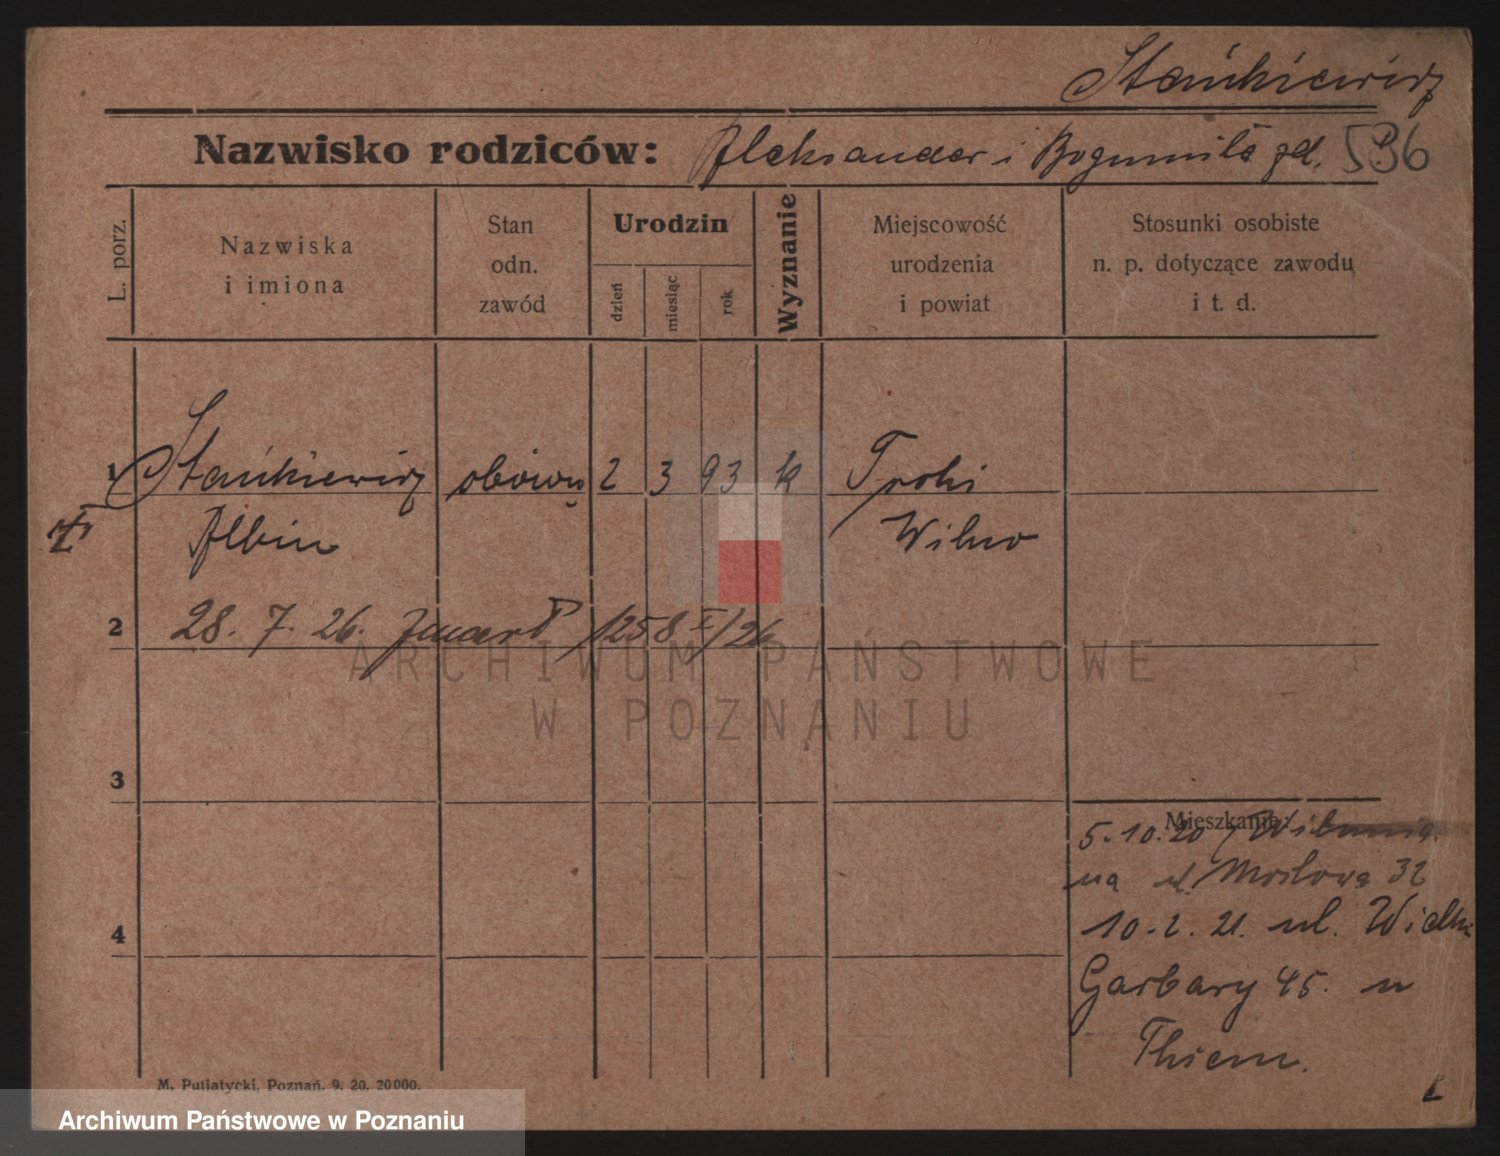 Stańkiewicz
Nazwisko rodziców: Aleksander i Bogumiła zd. 536
L. porz.
Nazwiska
i imiona
Stan
odn.
zawód
Urodzin
dzień
miesiąc
rok
Wyznanie
Miejscowość
urodzenia
i powiat
Stosunki osobiste
n. p. dotyczące zawodu
i t. d.
1 Stańkiewicz 2 3 93 k Troki
Albin Wilno
2 28. 7. 26. 1258 /26
ARCHIWUM PAŃSTWOWE
W POZNANIU
3
Mieszkanie:
5.10.20
na ul. 32
4 10.2.21. ul. Wielkie
Garbary 45. u
Thiem.
M. Putiatycki, Poznań. 9. 20. 20000.
Archiwum Państwowe w Poznaniu